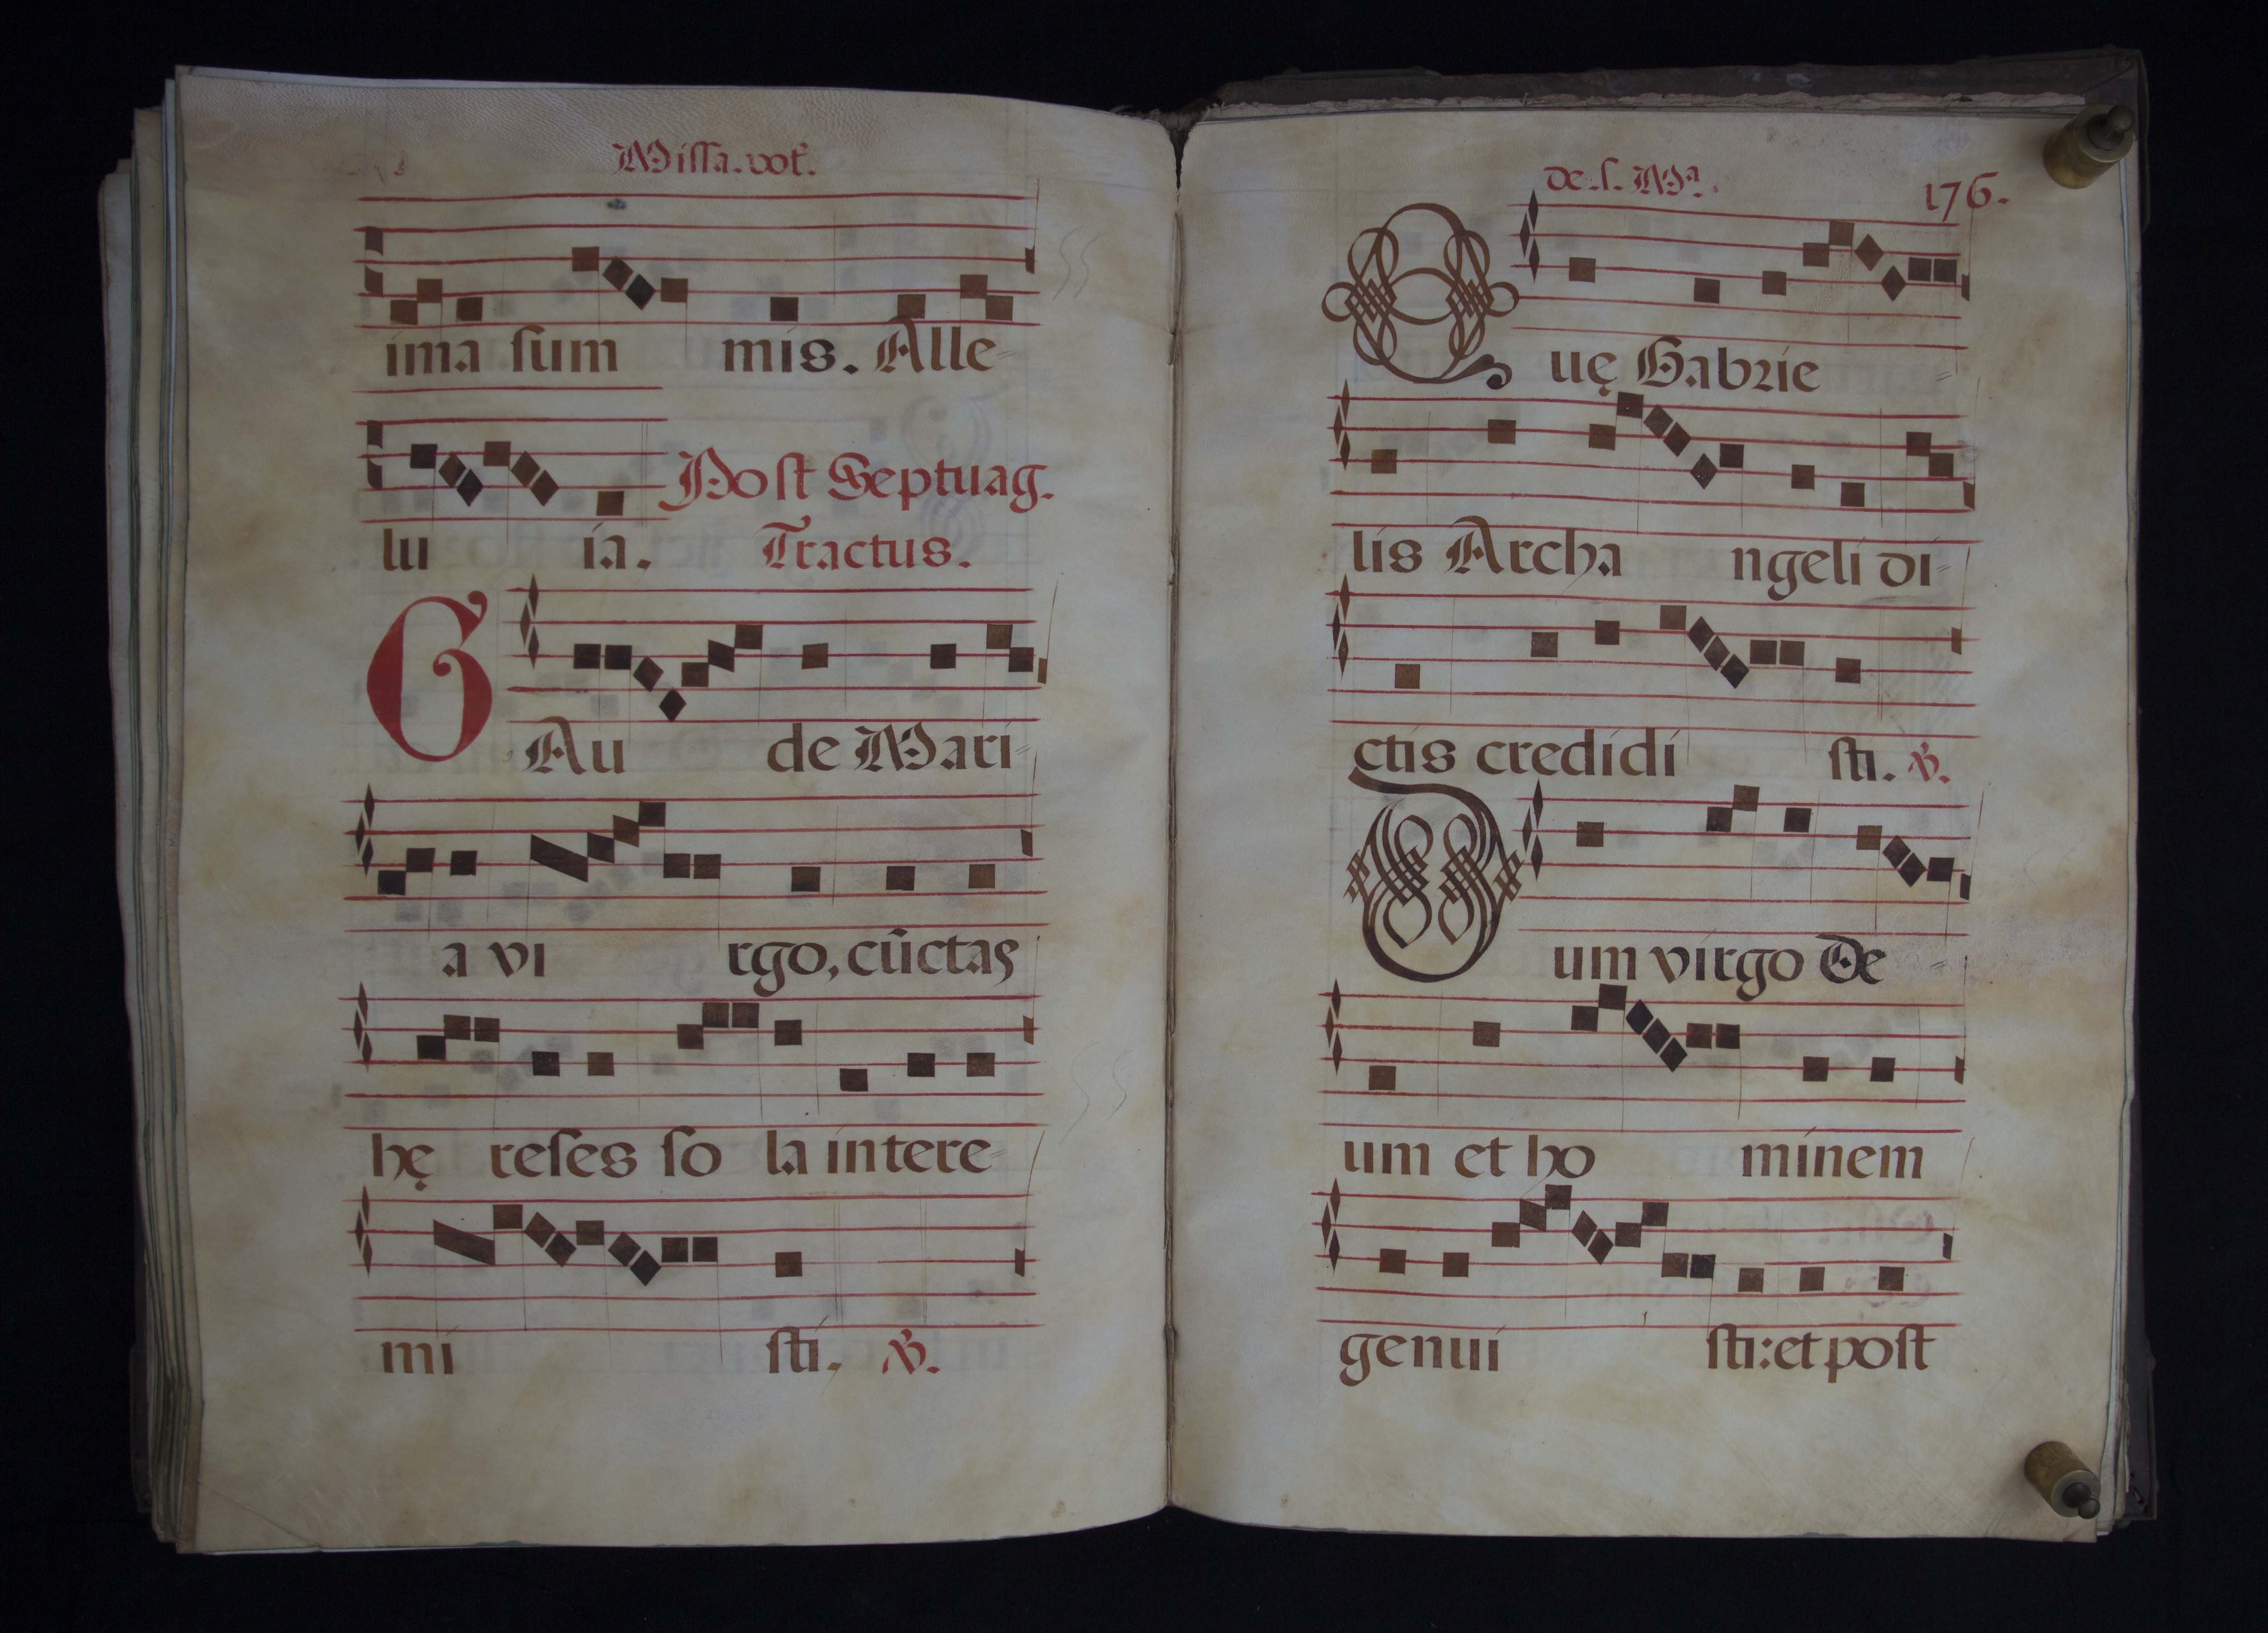 Missa. vot.
ima sum mis. Alle-
Post Septuag.
lu ia. Tractus.
GAu de Mari-
a vi rgo, cūctas
hę reses so la intere-
mi sti. ℣.
de. s. Mª. 176.
Quę Gabrie-
lis Archa ngeli di-
ctis credidi sti. ℣.
Dum virgo De-
um et ho minem
genui sti: et post